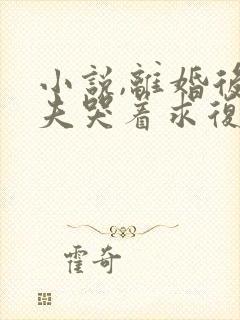 小說,離婚後
夫哭着求復
霍奇